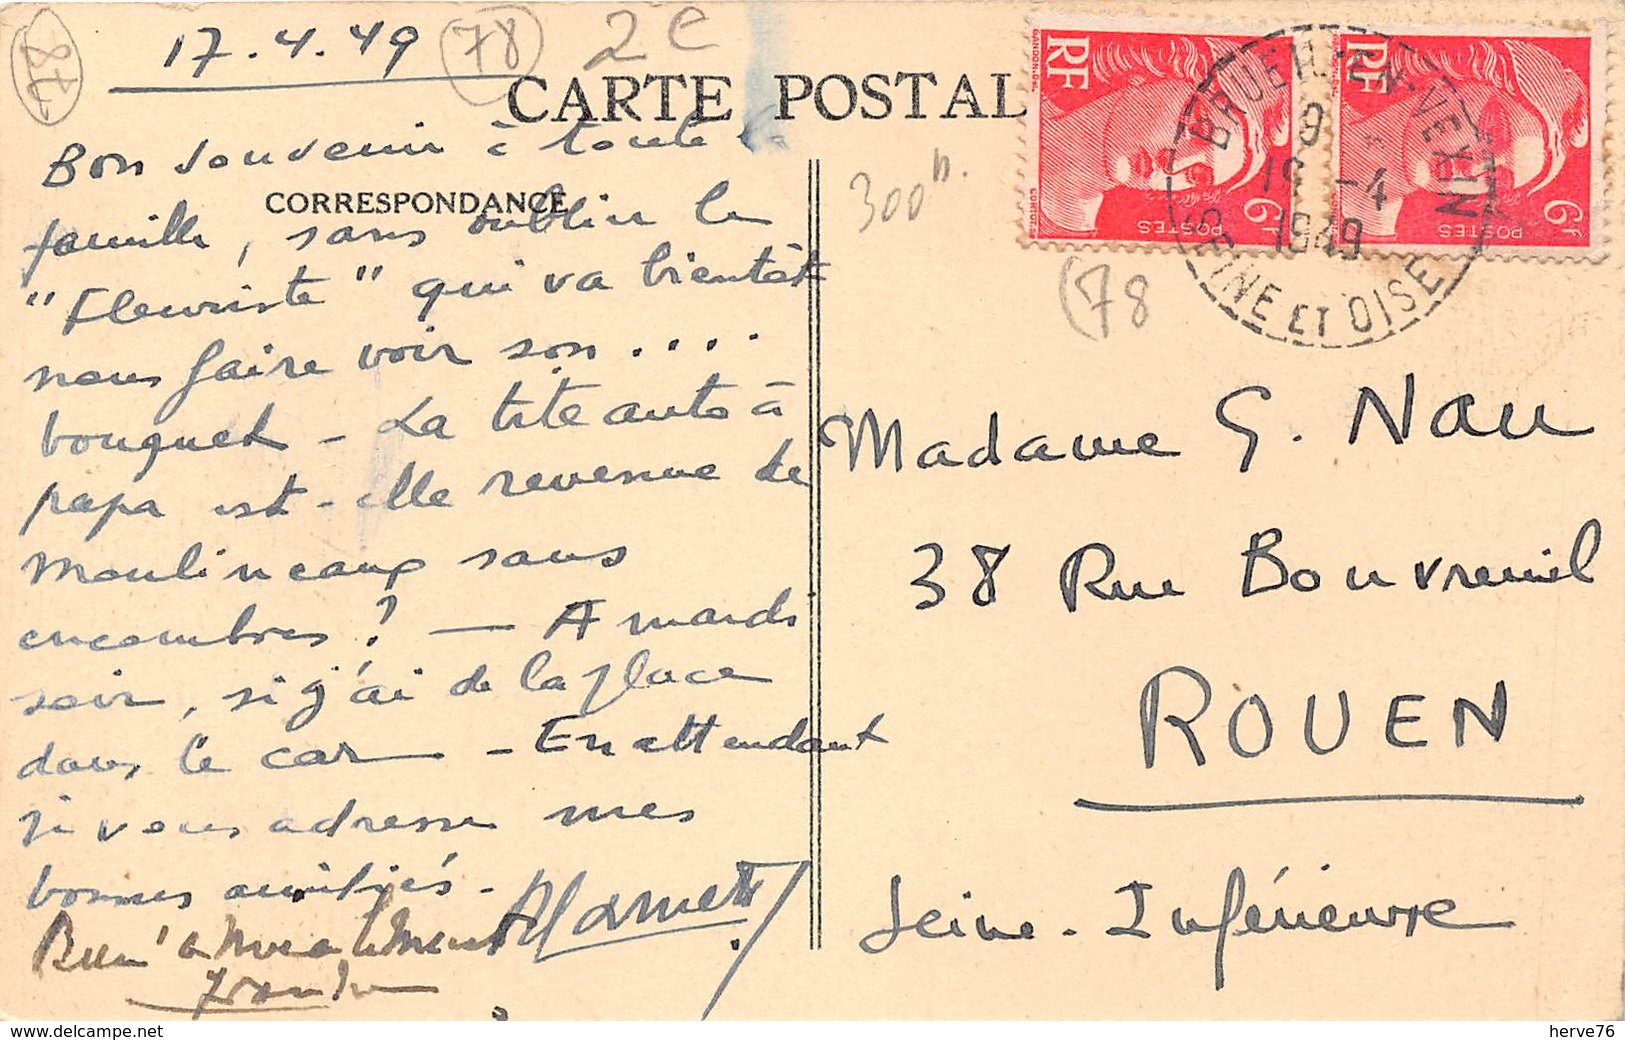 17.4.49
78
78
2e
CARTE POSTAL
CORRESPONDANCE
Bon souvenir à toute la
famille, sans oublier le
"Fleuriste" qui va bientôt
nous faire voir son....
bouquet - La tite auto à
papa est-elle revenue de
Moulineaux sans
encombres? - A mardi
soir, si j'ai de la place
dans le car - En attendant
je vous adresse mes
bonnes amitiés -
Bien amicalement
300
(78
RF
POSTES
6F
RF
POSTES
6F
BRUEIL-EN-VEXIN
9
19 -4
1949
SEINE ET OISE
Madame G. Nau
38 Rue Bouvreuil
ROUEN
Seine-Inférieure
https://www.delcampe.net
herve76